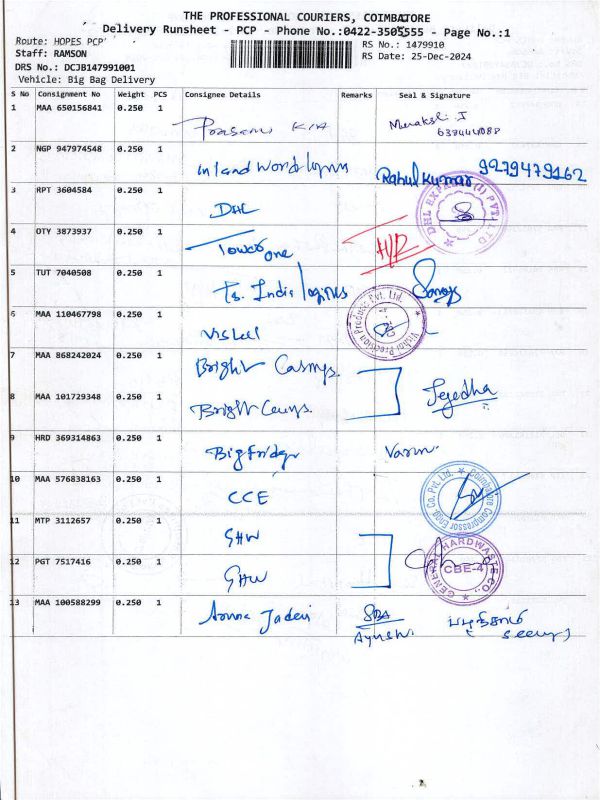 THE PROFESSIONAL COURIERS, COIMBATORE
Delivery Runsheet - PCP - Phone No.:0422-3505555 - Page No.:1
Route: HOPES PCP
RS No.: 1479910
Staff: RAMSON
RS Date: 25-Dec-2024
DRS No.: DCJB147991001
Vehicle: Big Bag Delivery
S No Consignment No Weight PCS Consignee Details Remarks Seal & Signature
1 MAA 650156841 0.250 1
2 NGP 947974548 0.250 1 Inland World Rahul Kumar 9279479162
3 RPT 3604584 0.250 1 DHL
DHL EXPRESS (I) PVT. LTD
4 OTY 3873937 0.250 1 Tower one
5 TUT 7040508 0.250 1 India
6 MAA 110467798 0.250 1
Precision Products Pvt. Ltd.
7 MAA 868242024 0.250 1 Bright
8 MAA 101729348 0.250 1 Bright
9 HRD 369314863 0.250 1 Varun
10 MAA 576838163 0.250 1 CCE
Coimbatore Compressor Engg. Co. Pvt. Ltd.
11 MTP 3112657 0.250 1 GHW
12 PGT 7517416 0.250 1 GHW
GENERAL HARDWASTE CO., CBE-4
13 MAA 100588299 0.250 1